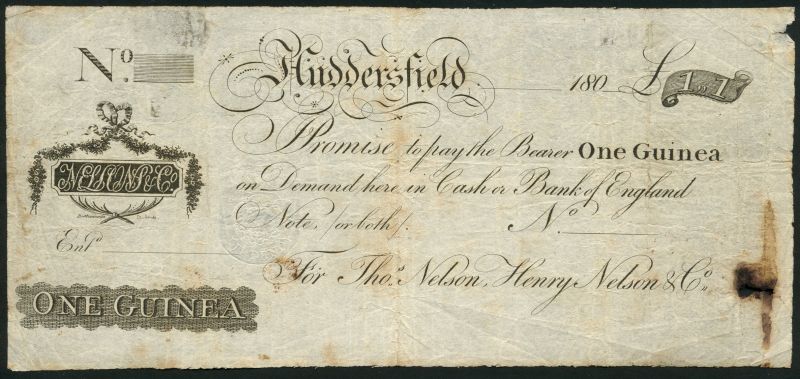 No. Huddersfield 180 £ 1„1
I Promise to pay the Bearer One Guinea
on Demand here in Cash or Bank of England
Note, /or both/. No
NELSONS & Co
Entd
For Thos. Nelson, Henry Nelson & Co.
ONE GUINEA